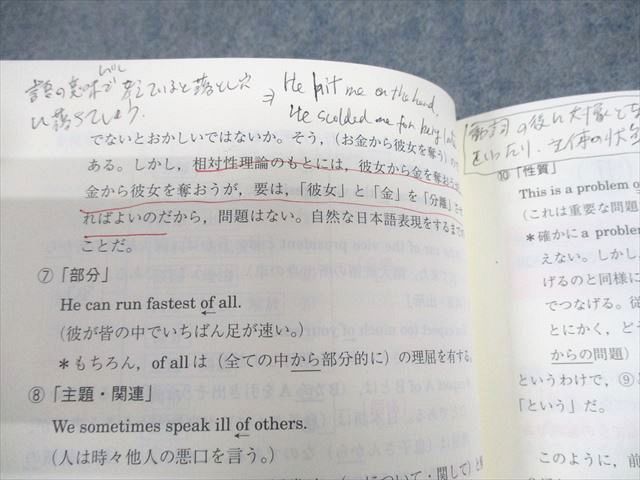 語の意味で覚えていると落とし穴
に落ちてしまう.
⇒ He hit me on the hand.
He scolded me for being late
でないとおかしいではないか。そう，（お金から彼女を奪う）の
ある。しかし，相対性理論のもとには，彼女から金を奪おうが
金から彼女を奪おうが，要は，「彼女」と「金」を「分離」
ればよいのだから，問題はない。自然な日本語表現をするまでの
ことだ。
⑦「部分」
He can run fastest of all.
（彼が皆の中でいちばん足が速い。）
＊もちろん，of all は（全ての中から部分的に）の理屈を有する
⑧「主題・関連」
We sometimes speak ill of others.
（人は時々他人の悪口を言う。）
について・関して）と
動詞の後に対象とな
⑩「性質」
This is a problem
（これは重要な問題
＊確かに a problem
えない。しかし
げるのと同様に
でつなげる。従
とにかく，ど
からの問題）
というわけで，⑨
「という」だ。
このように，前